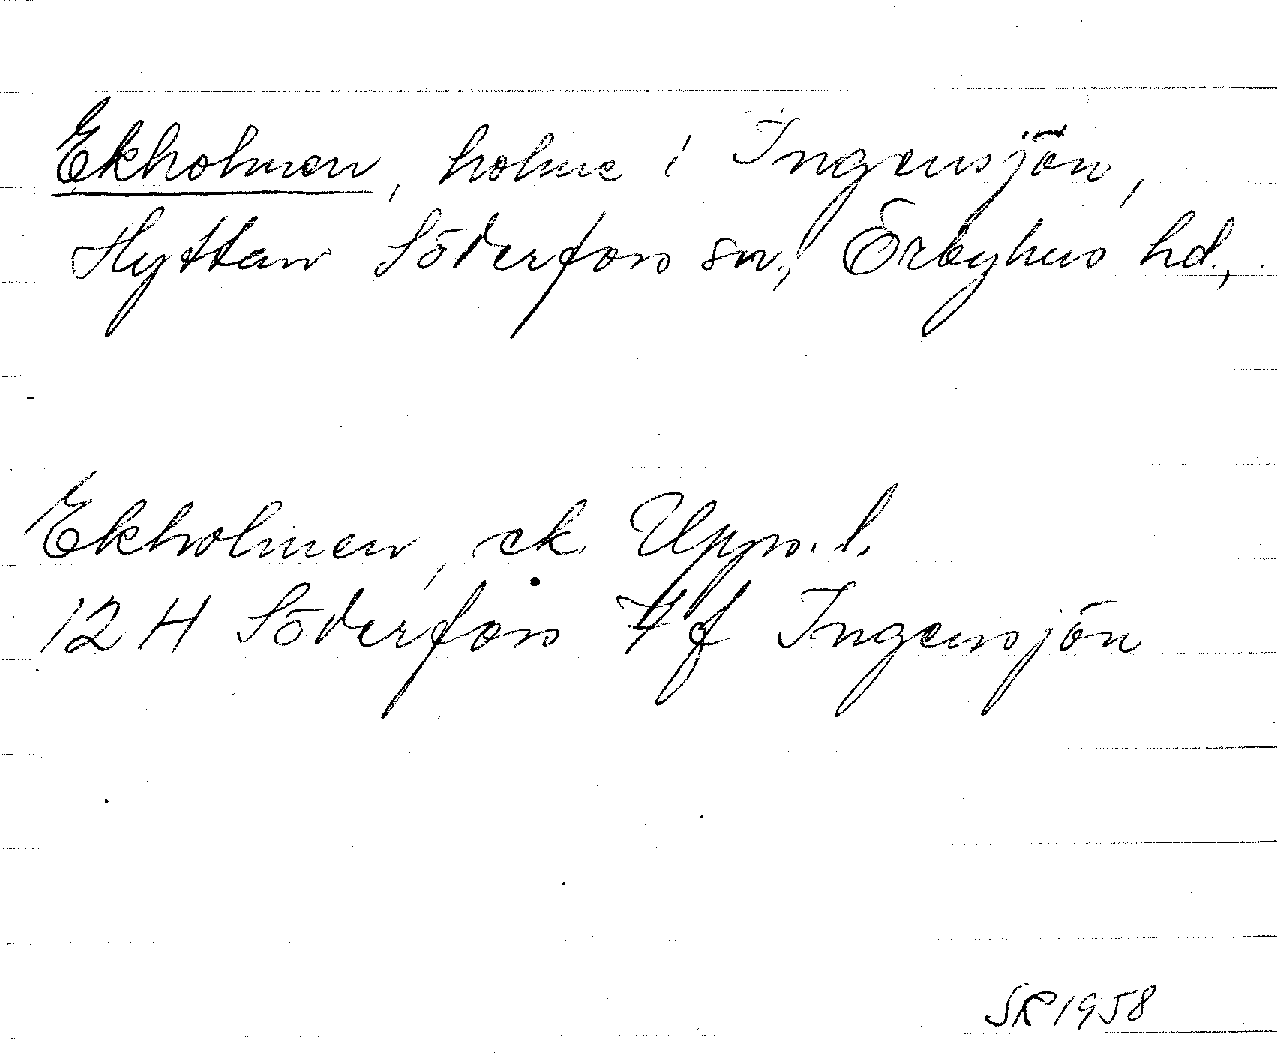 Ekholmen, holme i Ingensjön,
Hyttan Söderfors sn., Örbyhus hd.,
Ekholmen, ek. Upps. l.
12 H Söderfors 7 f Ingensjön
SR 1958